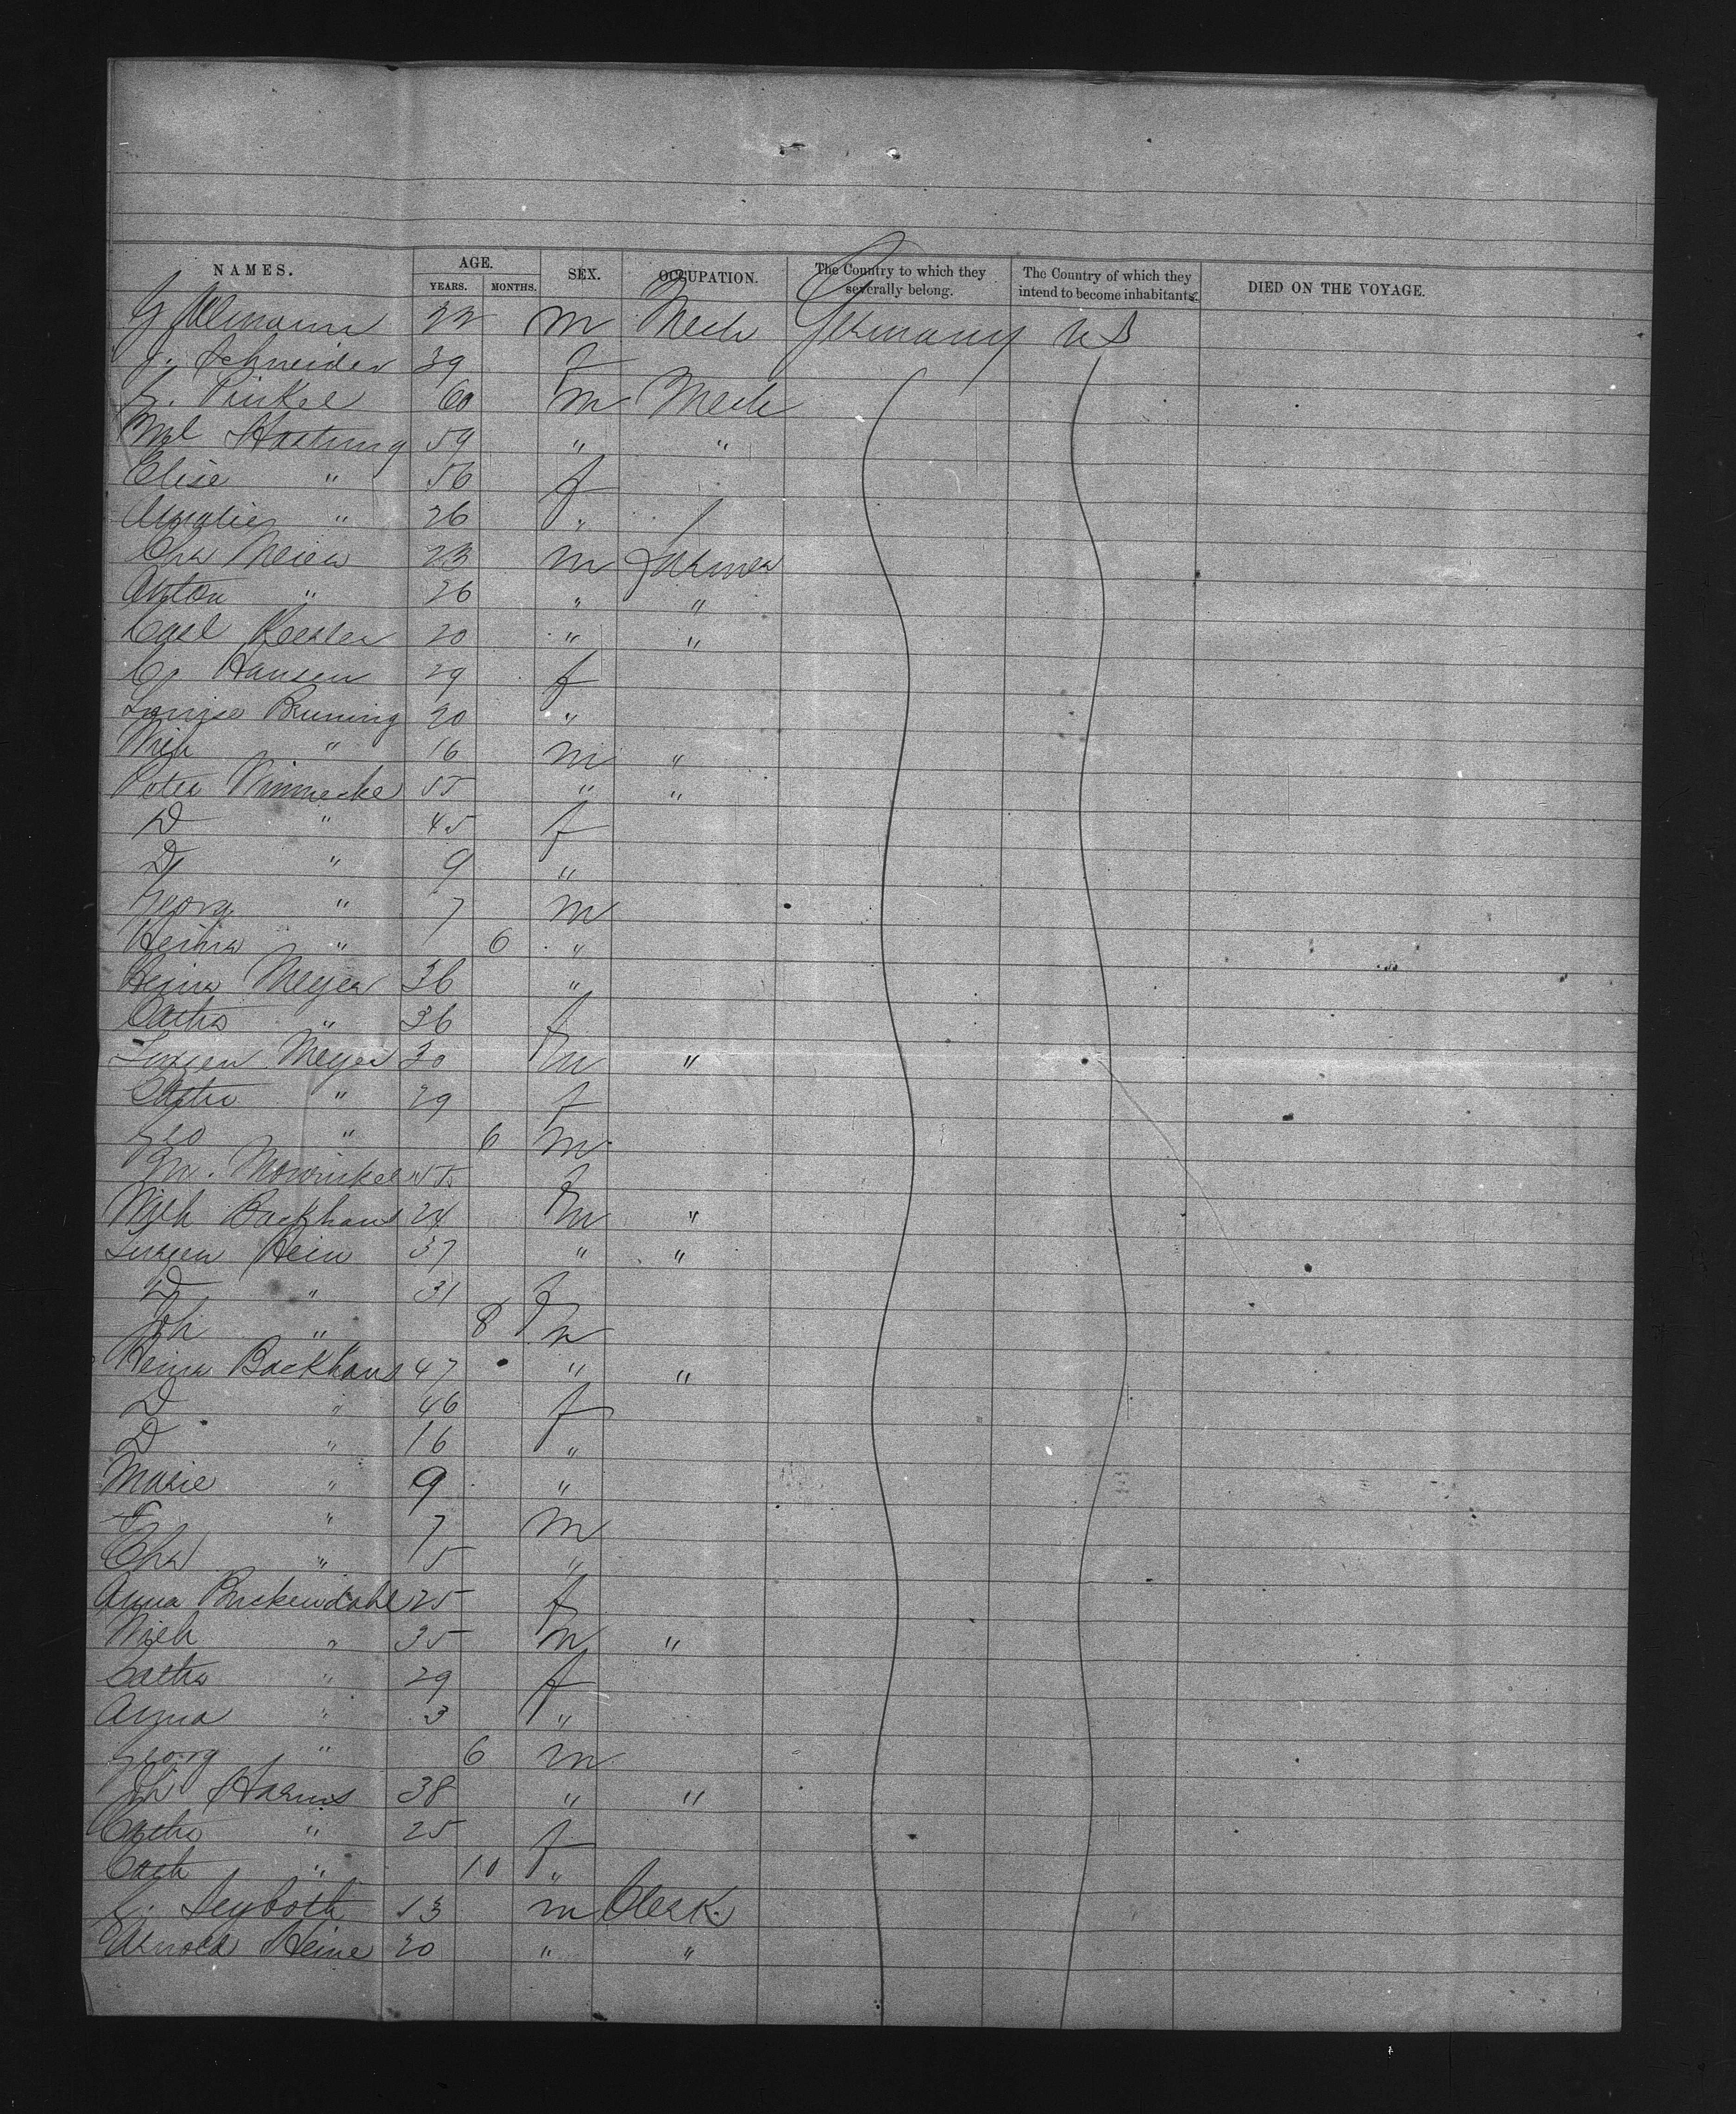 NAMES. AGE. SEX. OCCUPATION. The Country to which they severally belong. The Country of which they intend to become inhabitants. DIED ON THE VOYAGE.
YEARS. MONTHS.
22 m Mech Germany US
J. Schneider 39 f
G. Pinkel 60 m Mech
Hartung 59 " "
Elise " 56 f
Amalie " 26 "
Chr Meier 23 m Farmer
Anton " 26 " "
Carl 20 " "
C. Hansen 29 f
Louise Bruning 20 "
" 16 m "
Peter Winnecke 55 " "
D " 45 f
D " 9 "
Georg " 7 m
Heinr " 6 "
Heinr Meyer 36 "
Cathr " 36 f
Meyer 30 m "
Cathr " 29 f
Geo " 6 m
f
Backhaus 24 m "
Hein 37 " "
D " 31 f
Joh " 8 m
Heinr Backhaus 47 " "
D " 46 f
D " 16 "
Marie " 9 "
" 7 m
Chr " 5 "
Anna 25 f
" 35 m "
Cathr " 29 f
Anna " 3 "
Georg " 6 m
Joh Harms 38 " "
Cathr " 25 f
Cath " 10 "
Seyboth 13 m Clerk
Arnold Heine 20 " "